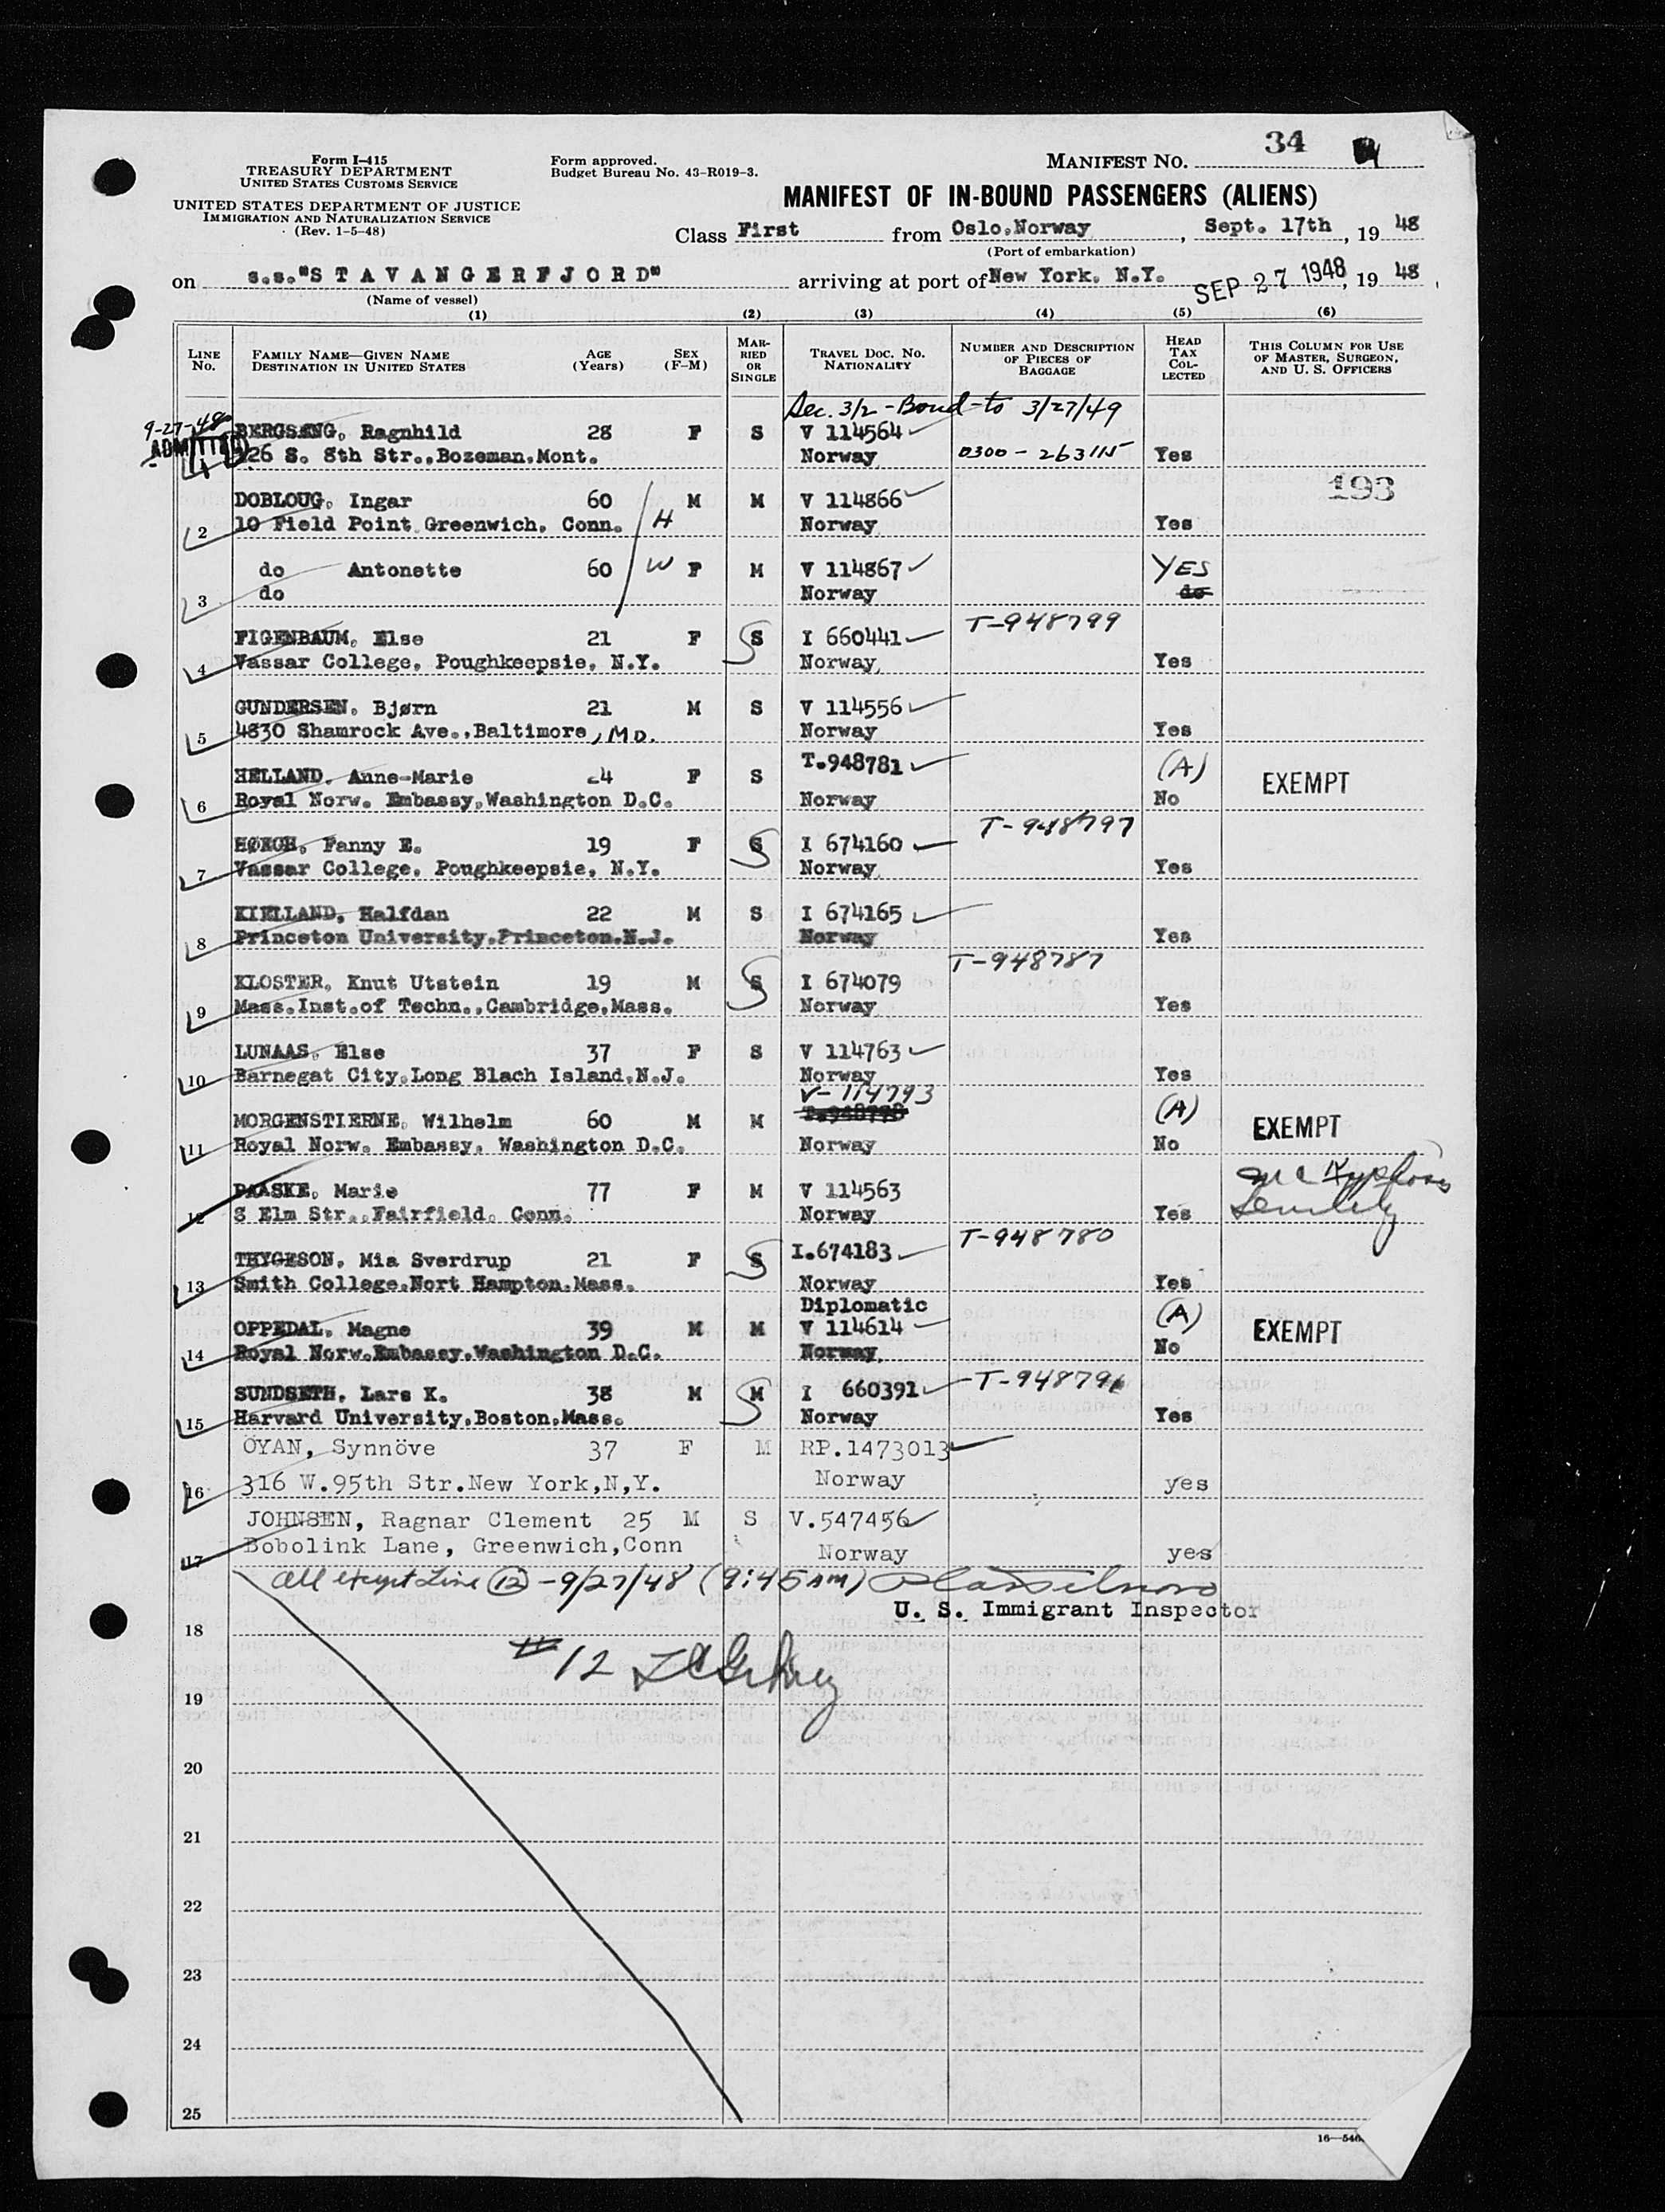 34
Form I-415
TREASURY DEPARTMENT
UNITED STATES CUSTOMS SERVICE
Form approved.
Budget Bureau No. 43-R019-3.
MANIFEST NO.
UNITED STATES DEPARTMENT OF JUSTICE
IMMIGRATION AND NATURALIZATION SERVICE
(Rev. 1-5-48)
MANIFEST OF IN-BOUND PASSENGERS (ALIENS)
Class First from Oslo,Norway, Sept. 17th, 19 48
(Port of embarkation)
on s.s."STAVANGERFJORD" arriving at port of New York, N.Y. SEP 27 1948, 19 48
(Name of vessel)
(1) (2) (3) (4) (5) (6)
LINE No. FAMILY NAME—GIVEN NAME DESTINATION IN UNITED STATES AGE (Years) SEX (F-M) MARRIED OR SINGLE TRAVEL DOC. NO. NATIONALITY NUMBER AND DESCRIPTION OF PIECES OF BAGGAGE HEAD TAX COLLECTED THIS COLUMN FOR USE OF MASTER, SURGEON, AND U. S. OFFICERS
Sec. 3/2 - Bond to 3/27/49
9-27-48 BERGSENG, Ragnhild 28 F S V 114564
ADMITTED 26 S. 8th Str.,Bozeman,Mont. Norway 0300 - 263115 Yes
193
DOBLOUG, Ingar 60 M M V 114866
2 10 Field Point Greenwich, Conn. H Norway Yes
do Antonette 60 W F M V 114867 YES
3 do Norway do
T-948799
FIGENBAUM, Else 21 F S I 660441
4 Vassar College, Poughkeepsie, N.Y. Norway Yes
GUNDERSEN, Bjørn 21 M S V 114556
5 4830 Shamrock Ave.,Baltimore, MD. Norway Yes
HELLAND, Anne-Marie 24 F S T.948781 (A) EXEMPT
6 Royal Norw. Embassy,Washington D.C. Norway No
T-948797
HØEGH, Fanny E. 19 F S I 674160
7 Vassar College, Poughkeepsie, N.Y. Norway Yes
KIELLAND, Halfdan 22 M S I 674165
8 Princeton University,Princeton,N.J. Norway Yes
T-948787
KLOSTER, Knut Utstein 19 M S I 674079
9 Mass.Inst.of Techn.,Cambridge,Mass. Norway Yes
LUNAAS, Else 37 F S V 114763
10 Barnegat City,Long Blach Island,N.J. Norway Yes
V-114793
MORGENSTIERNE, Wilhelm 60 M M (A) EXEMPT
11 Royal Norw. Embassy, Washington D.C. Norway No
PAASKE, Marie 77 F M V 114563
12 8 Elm Str.,Fairfield, Conn. Norway Yes
T-948780
THYGESON, Mia Sverdrup 21 F S I.674183
13 Smith College,Nort Hampton,Mass. Norway Yes
Diplomatic
OPPEDAL, Magne 39 M M V 114614 (A) EXEMPT
14 Royal Norw.Embassy,Washington D.C. Norway No
SUNDSETH, Lars K. 38 M M I 660391 T-948796
15 Harvard University,Boston,Mass. Norway Yes
OYAN, Synnöve 37 F M RP.1473013
16 316 W.95th Str.New York,N,Y. Norway yes
JOHNSEN, Ragnar Clement 25 M S V.547456
17 Bobolink Lane, Greenwich,Conn Norway yes
All except Line (12) - 9/27/48 (9:45 AM)
U. S. Immigrant Inspector
18
#12
19
20
21
22
23
24
25